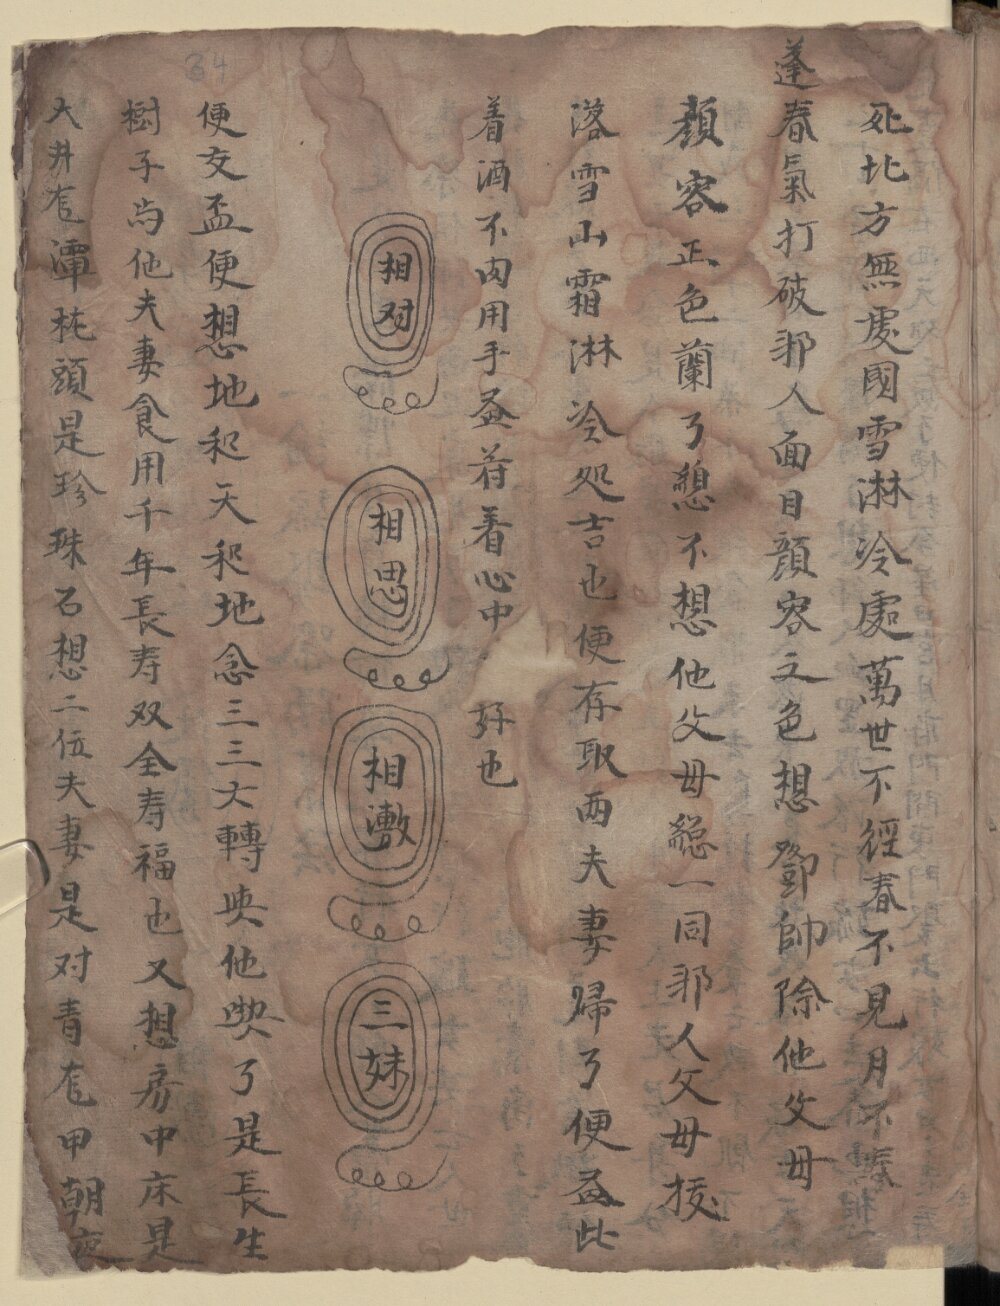 死北方無處國雪淋冷處萬世不徑春不見月不
蓬春氣打破邪人面目顔容之色想鄧帥除他父母
顔容正色蘭了憩不想他父母緫一同邪人父母
落雪山霜淋冷処吉也便存取两夫妻歸了便此
着酒不肉用手符着心中 好也
相对
相思
相激
三妹
便交盃便想地和天和地念三三大轉與他喫了是長生
樹子与他夫妻食用千年長寿双全寿福也又想房中床是
大井潭枕頭是珍珠石想二伍夫妻是对青甲朝夜
34